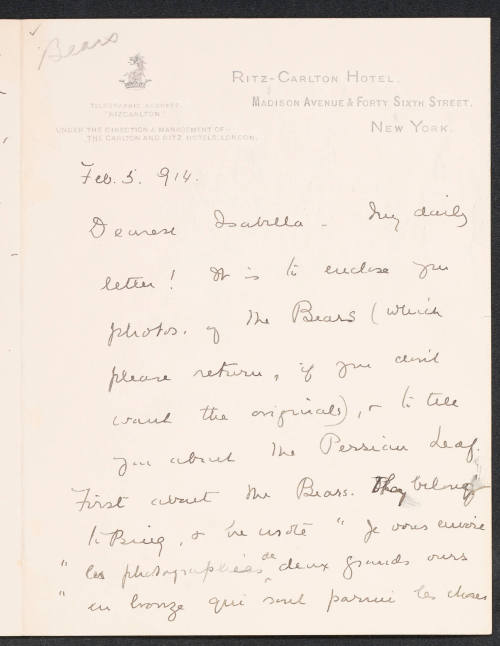 Bears
RITZ-CARLTON HOTEL.
MADISON AVENUE & FORTY SIXTH STREET.
NEW YORK.
TELEGRAPHIC ADDRESS,
"RIZCARLTON".
UNDER THE DIRECTION & MANAGEMENT OF
THE CARLTON AND RITZ HOTELS, LONDON.
Feb. 5. 914.
Dearest Isabella - My daily
letter! It is to enclose you
photos. of the Bears (which
please return, if you don't
want the originals), & to tell
you about the Persian Leaf.
First about the Bears. They belong
to Bing, & he wrote " Je vous envoie
" les photographies de deux grands ours
" en bronze qui sont parmi les choses